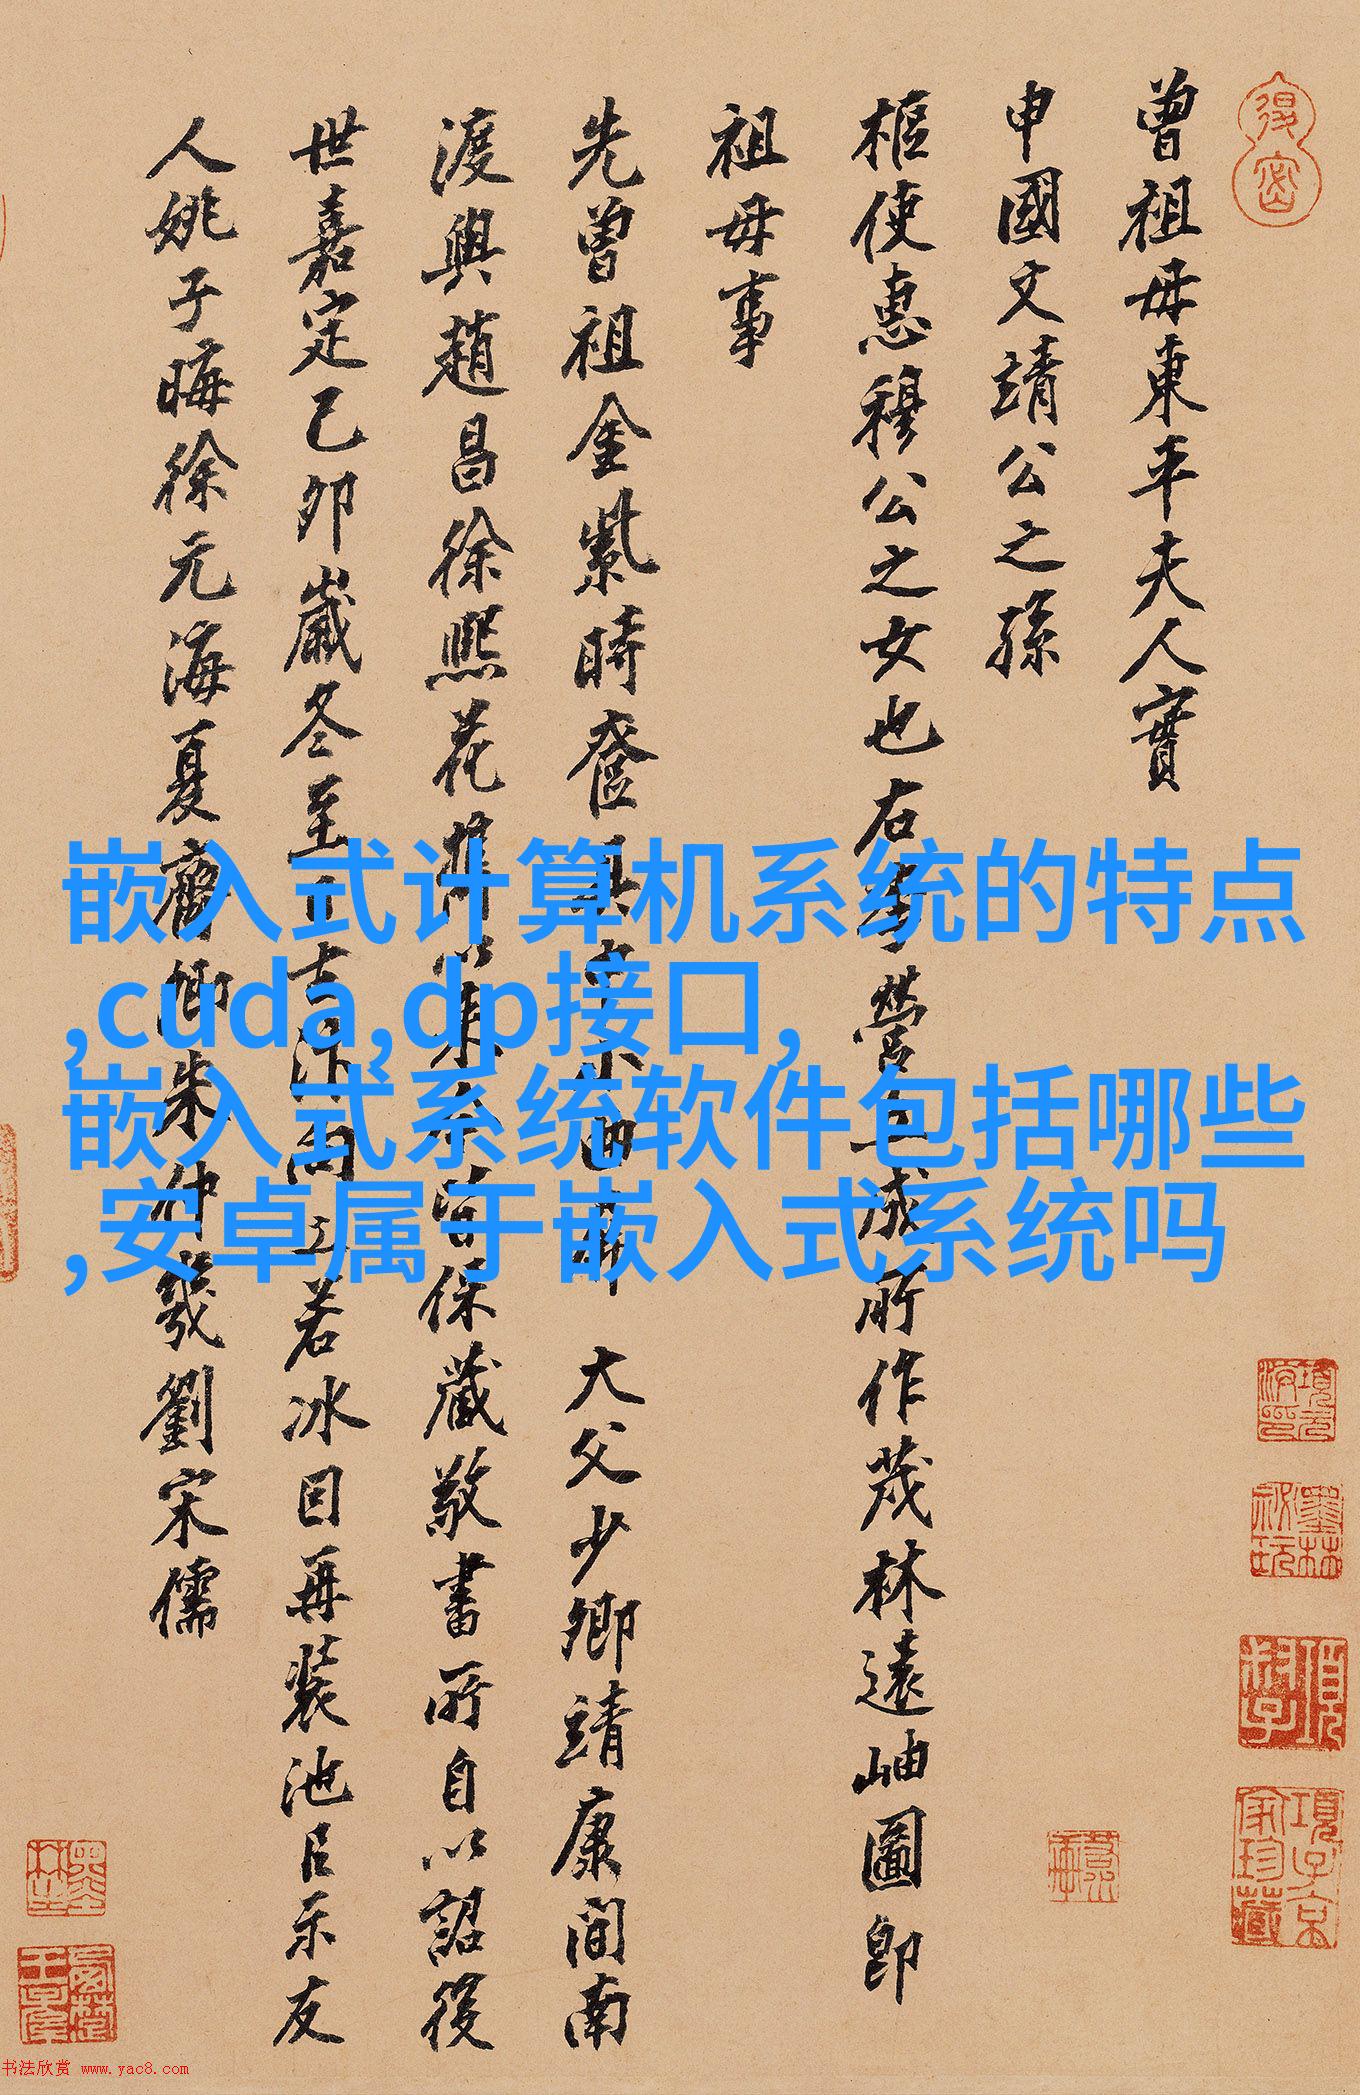 曾祖母東平夫人實
申國文靖公之孫
樞使惠穆公之女也右李營丘成所作茂林遠岫圖即
祖母事
先曾祖金紫時奩具中
大父少卿靖康間南
渡與趙昌徐熙花
保藏敬書所自以詔後
世嘉定己卯歲冬至
若冰因再裝池呂示友
人姚子晦徐元海夏齊卿朱仲幾劉宋儒
嵌入式计算机系统的特点
,cuda,dp接口,
嵌入式系统软件包括哪些
,安卓属于嵌入式系统吗
书法欣赏 www.yac8.com